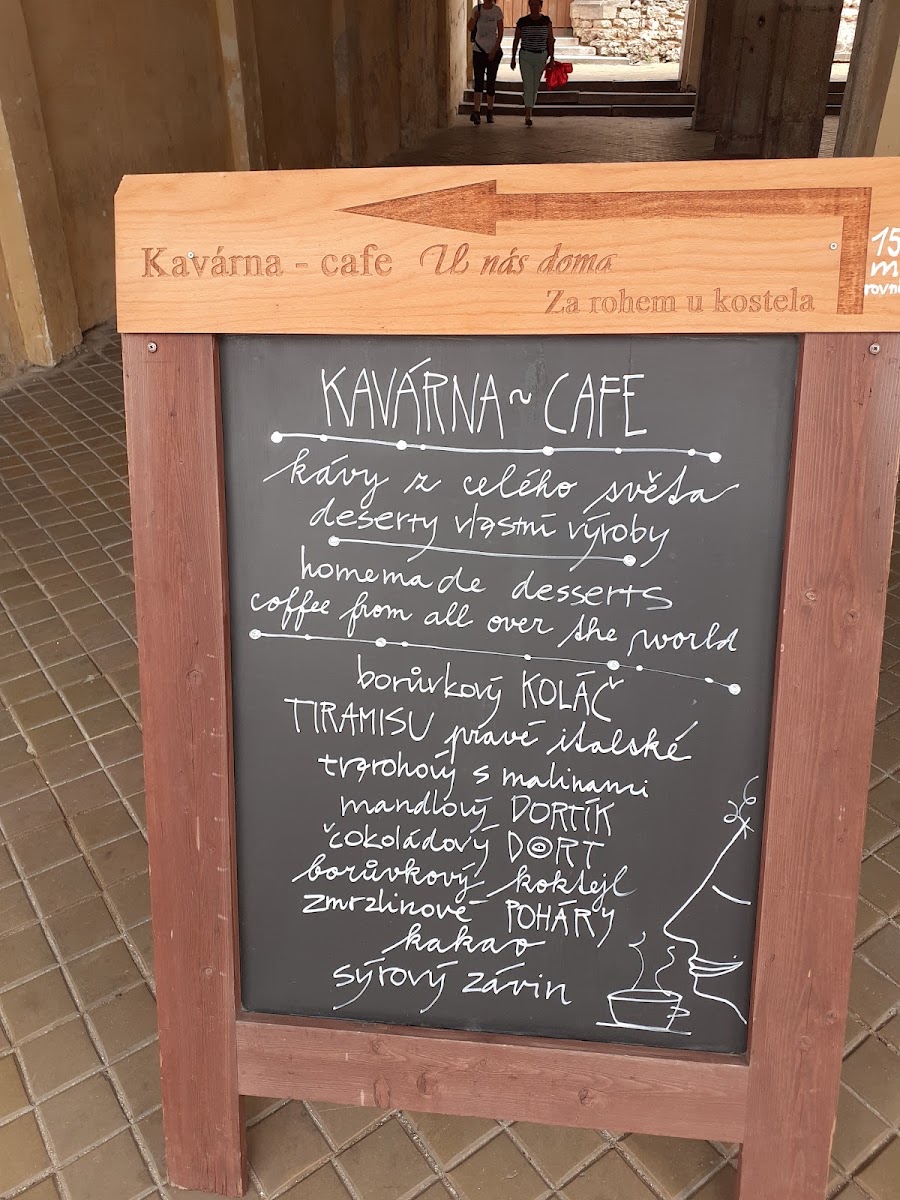 Kavárna - cafe U nás doma
Za rohem u kostela
15
m
rovně
KAVÁRNA ~ CAFE
kávy z celého světa
deserty vlastní výroby
homemade desserts
coffee from all over the world
borůvkový KOLÁČ
TIRAMISU pravé italské
tvarohový s malinami
mandlový DORTÍK
čokoládový DORT
borůvkový koktejl
zmrzlinové POHÁRY
kakao
sýrový závin